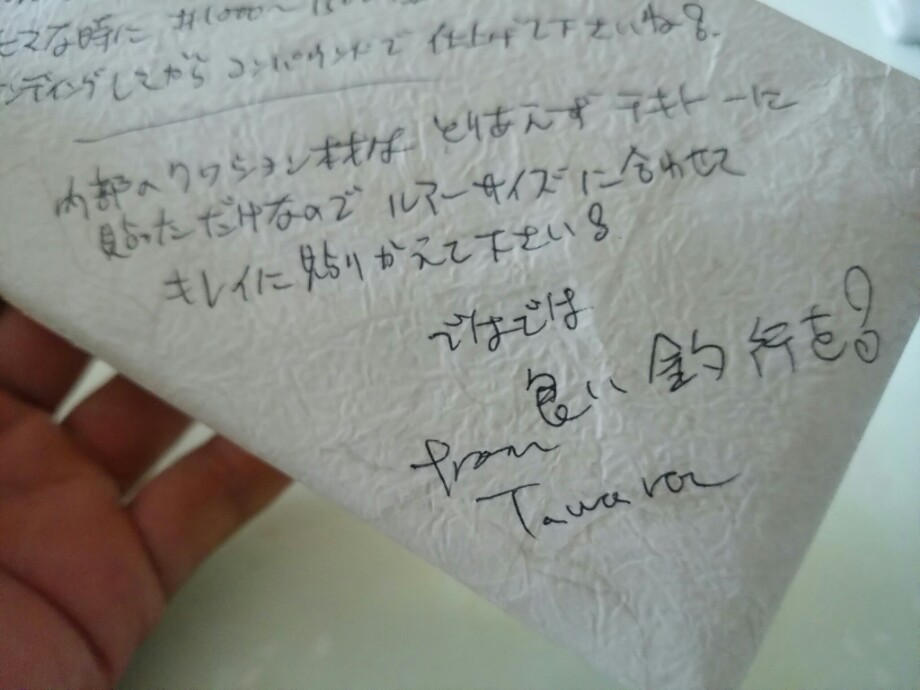 な時に #1000～
ンディングしてから コンパウンドで 仕上げて下さいね!
内部のクッション材は とりあえず テキトーに
貼っただけなので ルアーサイズに合わせて
キレイに貼りかえて下さい!
ではでは
良い釣行を!
from
Tawara